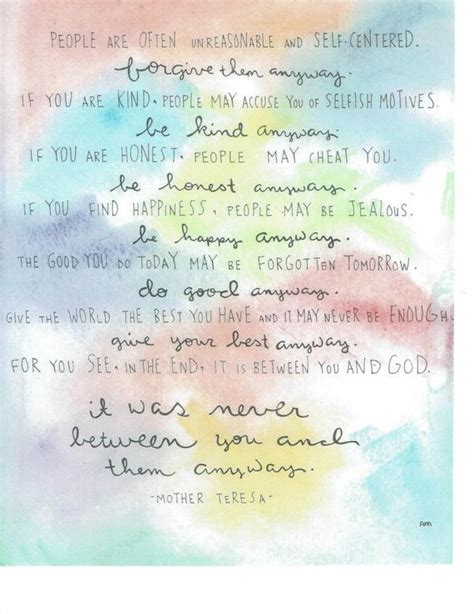 PEOPLE ARE OFTEN UNREASONABLE AND SELF-CENTERED.
forgive them anyway.
IF YOU ARE KIND, PEOPLE MAY ACCUSE YOU OF SELFISH MOTIVES.
be kind anyway.
IF YOU ARE HONEST, PEOPLE MAY CHEAT YOU.
be honest anyway.
IF YOU FIND HAPPINESS, PEOPLE MAY BE JEALOUS.
be happy anyway.
THE GOOD YOU DO TODAY MAY BE FORGOTTEN TOMORROW.
do good anyway.
GIVE THE WORLD THE BEST YOU HAVE AND IT MAY NEVER BE ENOUGH.
give your best anyway.
FOR YOU SEE, IN THE END, IT IS BETWEEN YOU AND GOD.
it was never
between you and
them anyway.
-MOTHER TERESA-